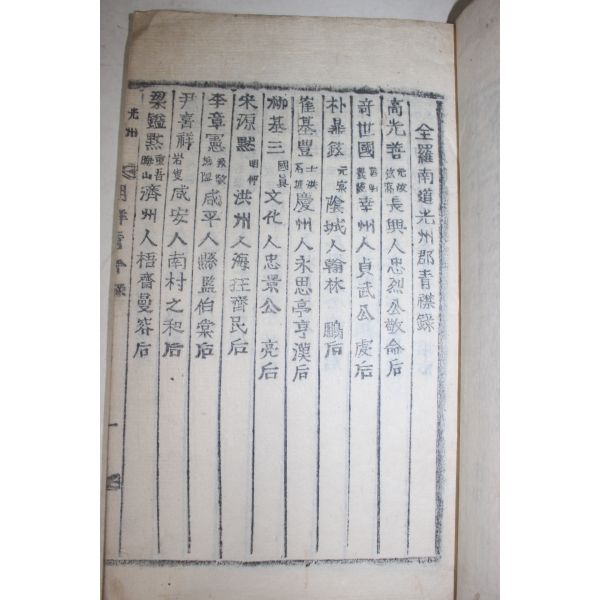 全羅南道光州郡青襟錄
高光善 長興人忠烈公敬命后
奇世國 幸州人貞武公虔后
朴鼎鉉 陰城人翰林 鵬后
崔基豐 慶州人永思亭亨漢后
柳基三 國眞 文化人忠景公 亮后
宋源黙 明仲 洪州人海狂齊民后
李章憲 咸平人縣監伯棠后
尹喜祥 岩叟 咸安人南村之和后
梁鎰黙 重吾 晦山 濟州人梧齋曼容后
光州
一